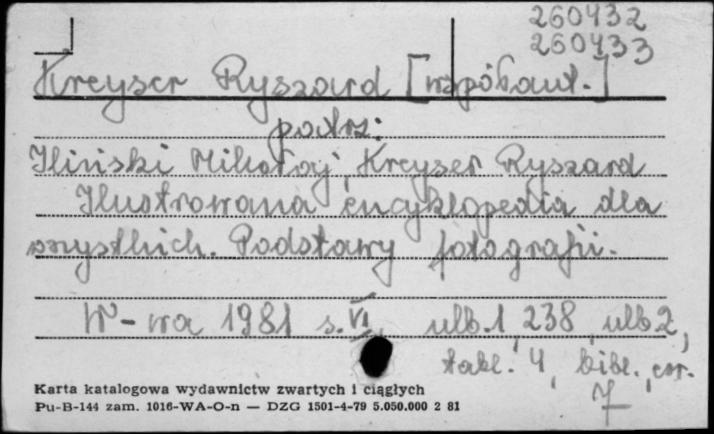 260432
260433
Kreyser Ryszard [współaut.]
patrz:
Iliński Mikołaj, Kreyser Ryszard
Ilustrowana encyklopedia dla
wszystkich. Podstawy fotografii.
W-wa 1981 s. VI, ulb. 1, 238, ulb 2,
tabl. 4, bibl.,
7
Karta katalogowa wydawnictw zwartych i ciągłych
Pu-B-144 zam. 1016-WA-O-n — DZG 1501-4-79 5.050.000 2 81